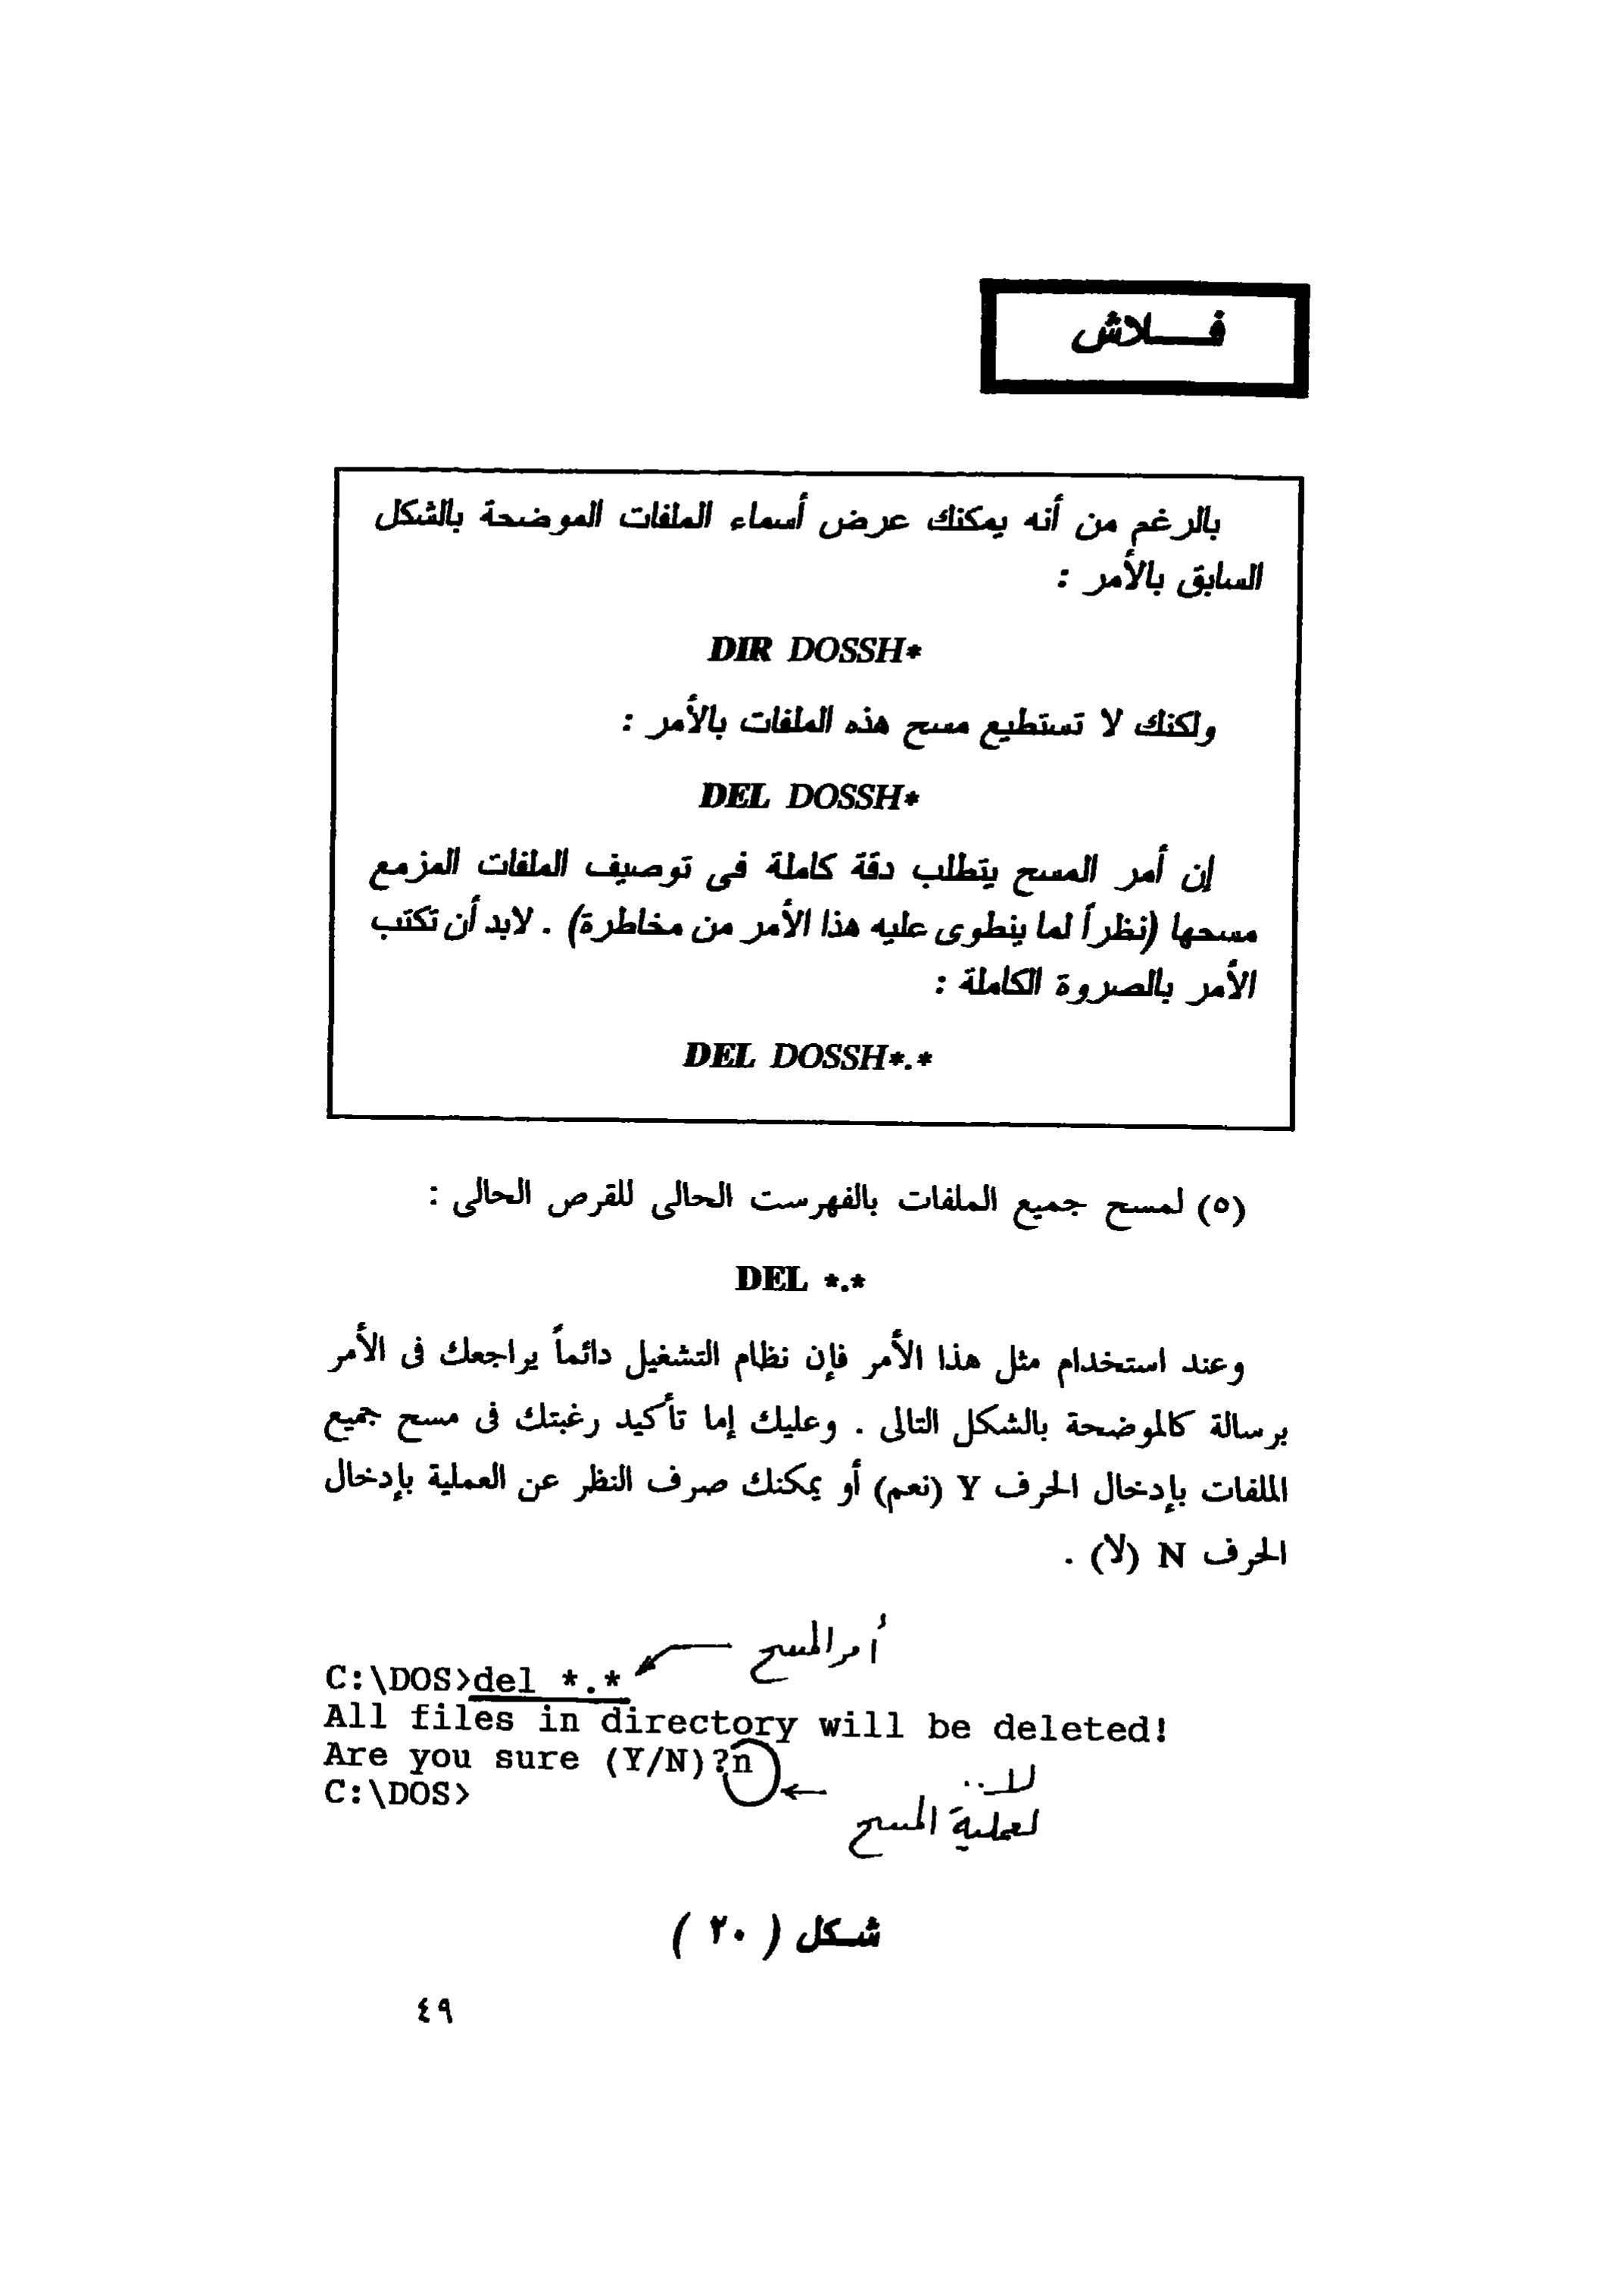 فـــلاش
بالرغم من أنه يمكنك عرض أسماء الملفات الموضحة بالشكل
السابق بالأمر :
DIR DOSSH*
ولكنك لا تستطيع مسح هذه الملفات بالأمر :
DEL DOSSH*
إن أمر المسح يتطلب دقة كاملة فى توصيف الملفات المزمع
مسحها (نظراً لما ينطوى عليه هذا الأمر من مخاطرة) . لابد أن تكتب
الأمر بالصروة الكاملة :
DEL DOSSH*.*
(٥) لمسح جميع الملفات بالفهرست الحالى للقرص الحالى :
DEL *.*
وعند استخدام مثل هذا الأمر فإن نظام التشغيل دائماً يراجعك فى الأمر
برسالة كالموضحة بالشكل التالى . وعليك إما تأكيد رغبتك فى مسح جميع
الملفات بإدخال الحرف Y (نعم) أو يمكنك صرف النظر عن العملية بإدخال
الحرف N (لا) .
أمر المسح
C:\DOS>del *.*
All files in directory will be deleted!
Are you sure (Y/N)?n
C:\DOS>
لا ..
لعملية المسح
شـكل ( ٢٠ )
٤٩